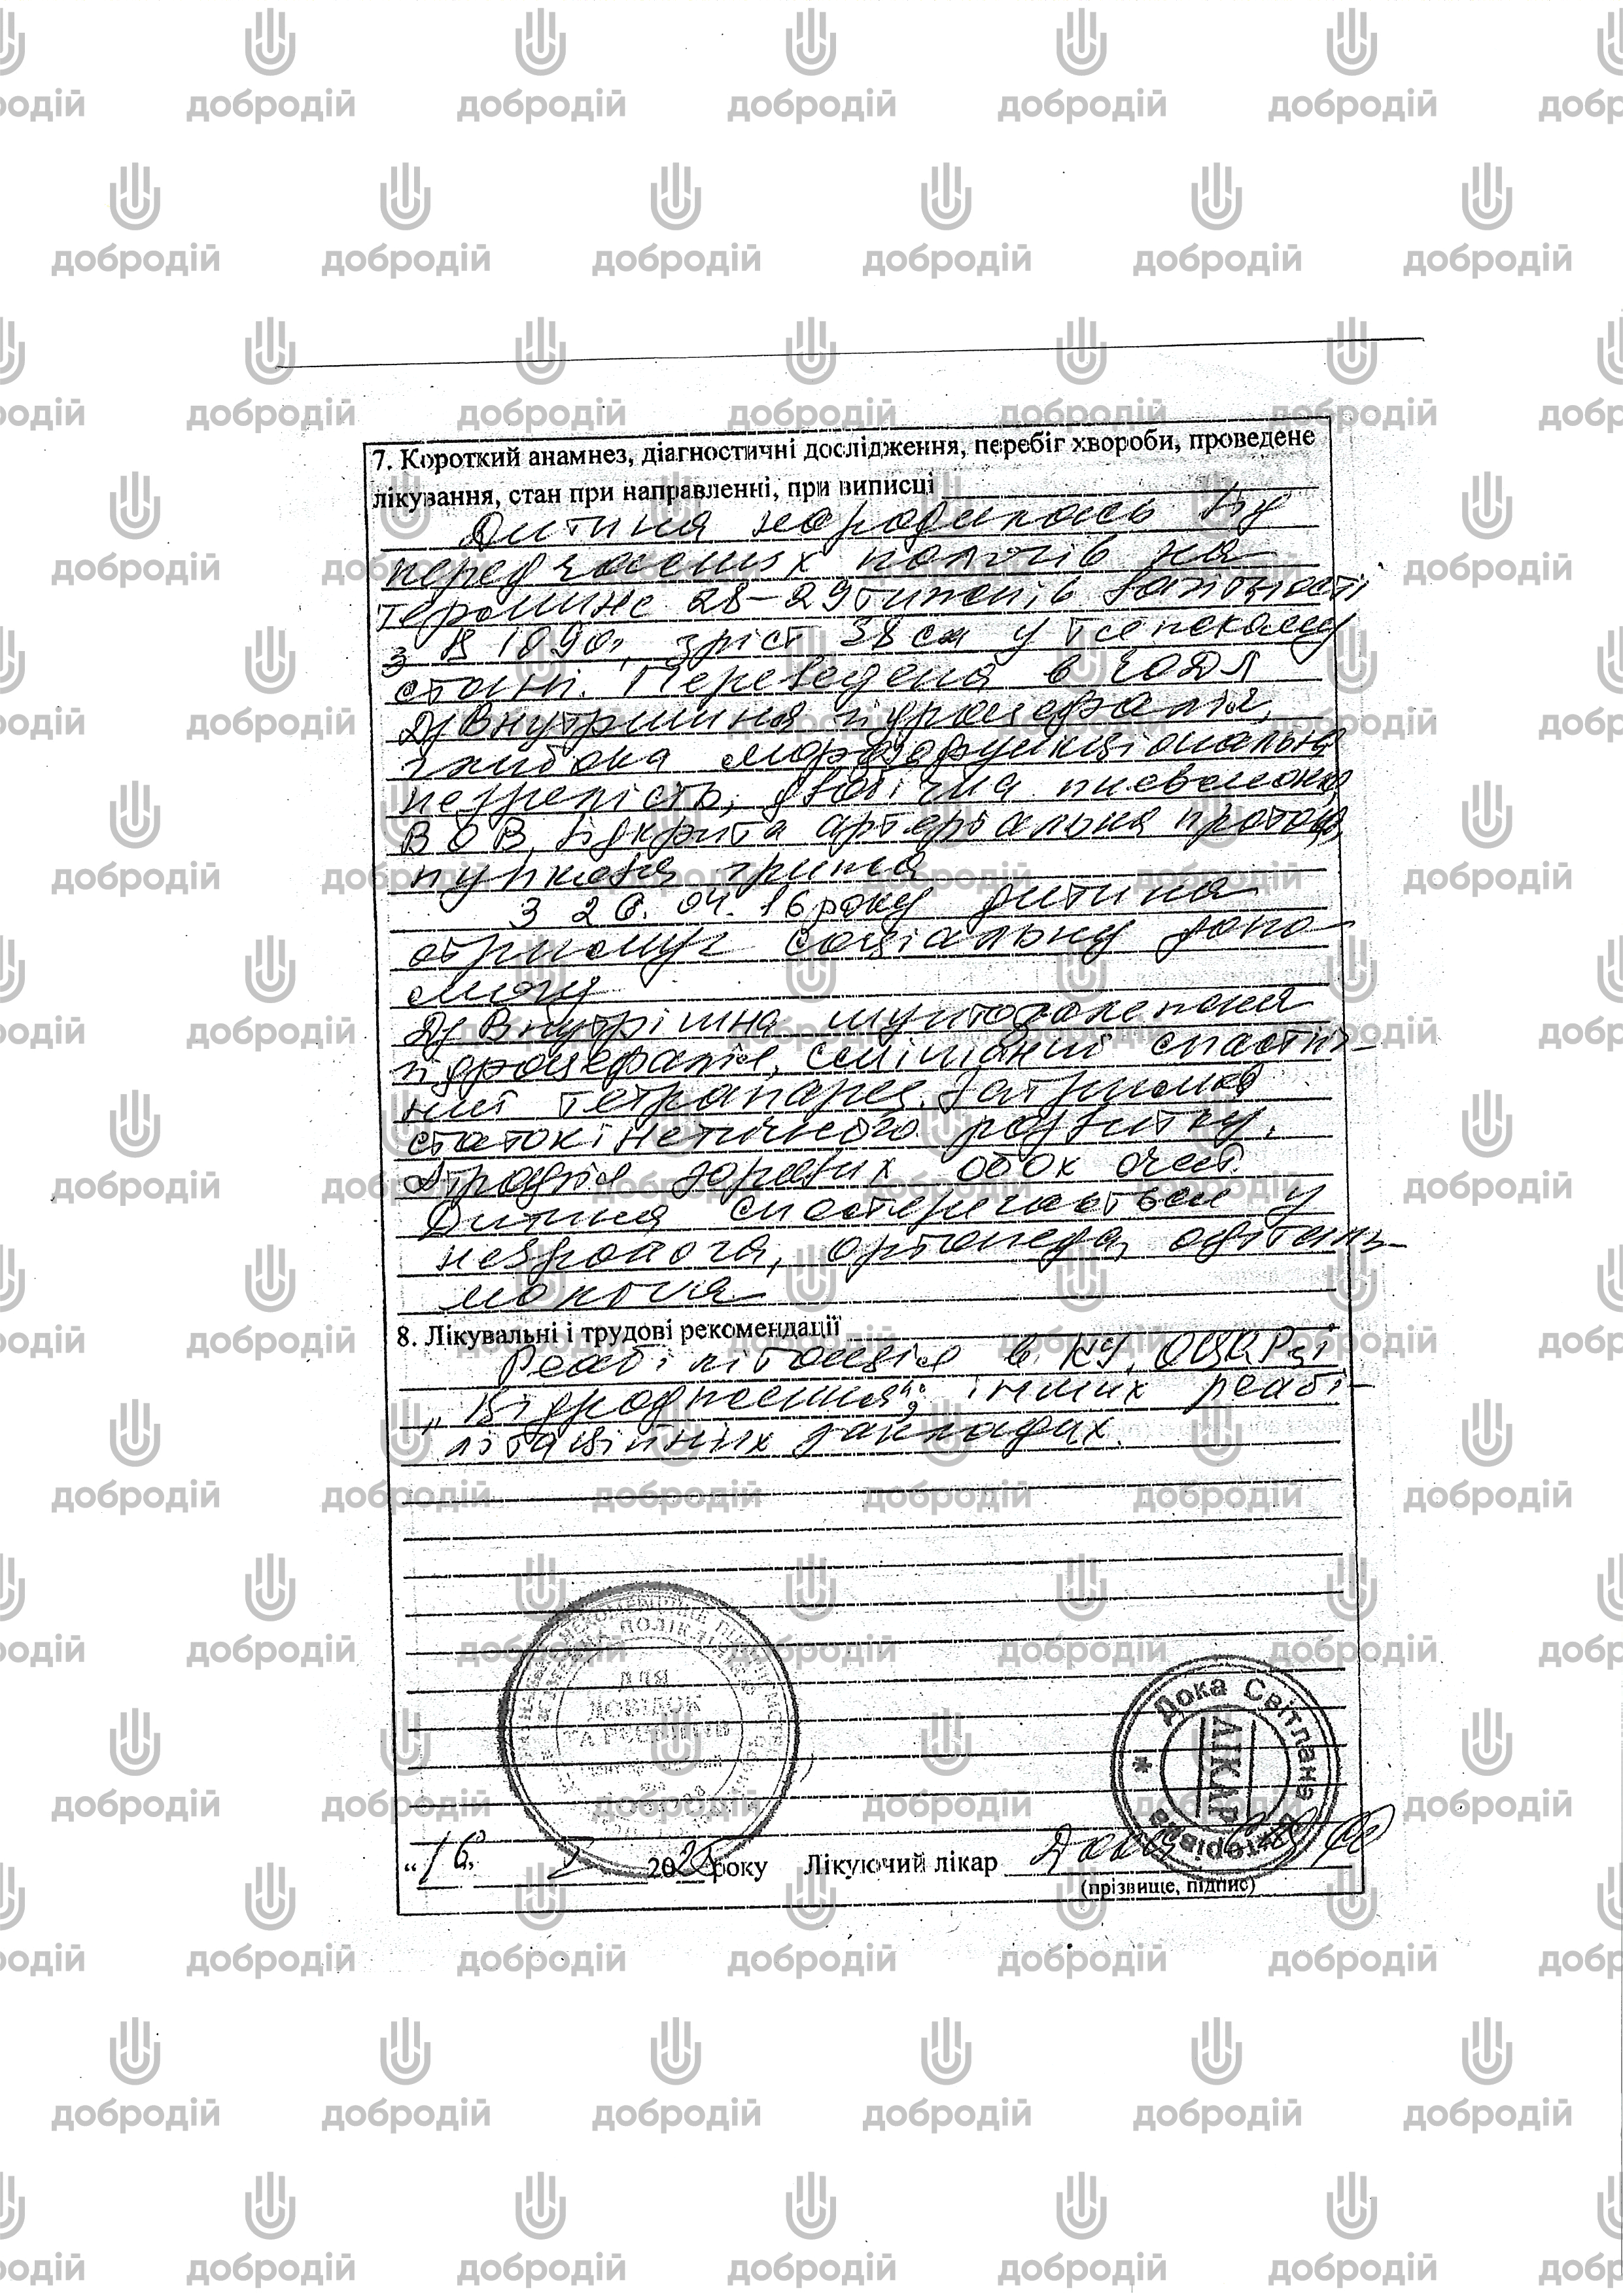 7. Короткий анамнез, діагностичні дослідження, перебіг хвороби, проведене
лікування, стан при направленні, при виписці
Дитина народилась від
передчасних пологів на
терміне 28-29 тижнів вагітності
з В 1090г, зріст 38 см у тяжкому
стані. Переведена в ЧОДЛ
Дз Внутрішня гідроцефалія,
глибока морфофункціональна
незрілість, двобічна пневмонія,
ВОВ, відкрита артеріальна протока,
пупкова грижа
З 20.04.16 року дитина
отримує соціальну допо-
могу
Дз Внутрішня шунтозалежна
гідроцефалія, змішаний спастич-
ний тетрапарез. Затримка
статокінетичного розвитку.
Атрофія зорових обох очей.
Дитина спостерігається у
невролога, ортопеда, офталь-
молога
8. Лікувальні і трудові рекомендації
Реабілітація в КУ,
„Відродження", інших реабі-
літаційних закладах.
ПОЛІКЛІНІКА
ДЛЯ
ДОВІДОК
ТА РЕЦЕПТІВ
Дока Світлана
Вікторівна
ЛІКАР
*
„16" 2025 року Лікуючий лікар Дока
(прізвище, підпис)
добродій